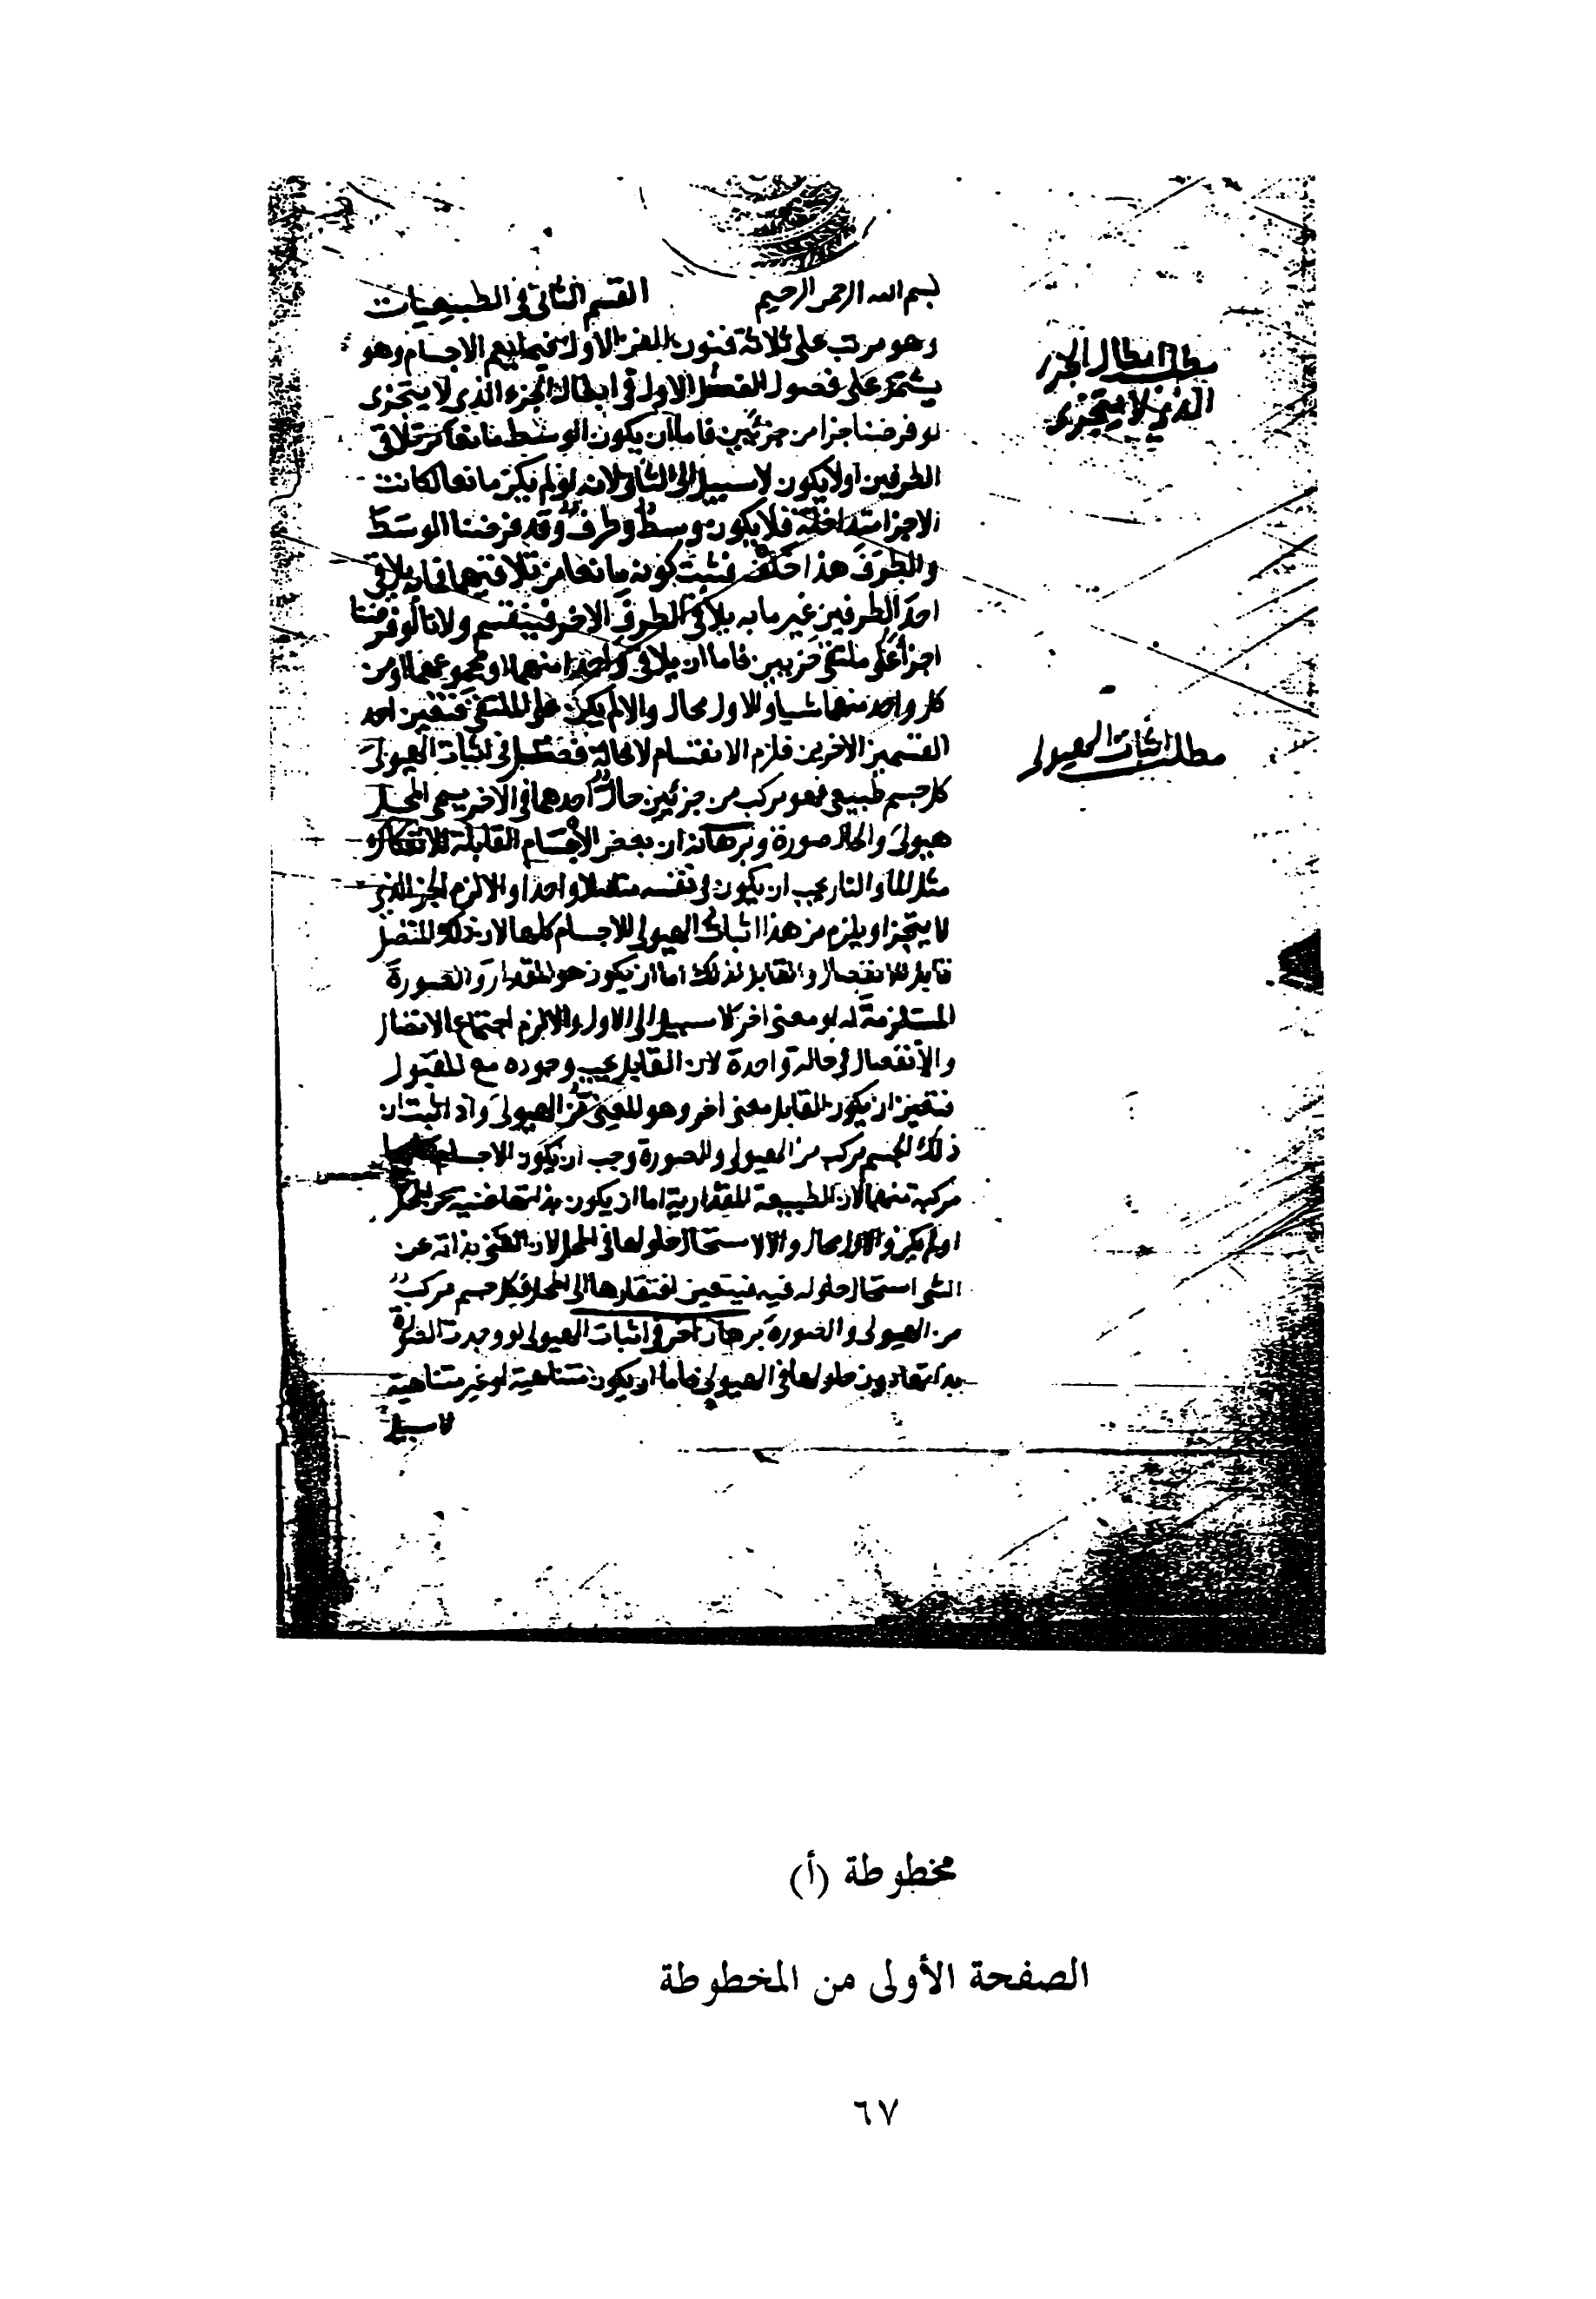 بسم الله الرحمن الرحيم القسم الثاني في الطبيعيات
وهو مرتب على ثلاثة فنون الفن الاول فيما يعم الاجسام وهو
يشتمل على فصول الفصل الاول في ابطال الجزء الذي لا يتجزى
لو فرضنا جزا من جزئين فاما ان يكون الوسط مانعا من تلاقي
الطرفين اولا يكون لا سبيل الى الثاني لانه لو لم يكن مانعا لكانت
الاجزا متداخلة فلا يكون وسط وطرف وقد فرضنا الوسط
والطرف هذا خلف فثبت كونه مانعا من تلاقيهما فما به يلاقي
احد الطرفين غير ما به يلاقي الطرف الاخر فينقسم ولانا لو فرضنا
جزأ على ملتقى جزيين فاما ان يلاقي واحدا منهما او مجموعهما او من
كل واحد منهما شيا والاول محال والا لم يكن على الملتقى فتعين احد
القسمين الاخرين فلزم الانقسام لا محالة فصل في اثبات الهيولى
كل جسم طبيعي فهو مركب من جزئين حال احدهما في الاخر يسمى المحل
هيولى والحال صورة وبرهانه ان بعض الاجسام القابلة للانفكاك
مثل الما والنار يجب ان يكون في نفسه متصلا واحدا والا لزم الجز الذي
لا يتجزا ويلزم من هذا اثبات الهيولى للاجسام كلها لان ذلك المتصل
قابل للانفصال والقابل لذلك اما ان يكون هو المقدار والصورة
المستلزمة له او معنى اخر لا سبيل الى الاول والا لزم اجتماع الاتصال
والانفصال في حالة واحدة لان القابل يجب وجوده مع المقبول
فتعين ان يكون القابل معنى اخر وهو المعني من الهيولى واذا ثبت ان
ذلك الجسم مركب من الهيولى والصورة وجب ان يكون الاجسام كلها
مركبة منهما لان الطبيعة المقدارية اما ان يكون بذاتها غنية عن المحل
او لم يكن والاول محال والا لاستحال حلولها في المحل لان الغني بذاته عن
الشي استحال حلوله فيه فيتعين افتقارها الى المحل فكل جسم مركب
من الهيولى والصورة برهان اخر في اثبات الهيولى لو وجدت الصورة
بذاتها دون حلولها في الهيولى فاما ان يكون متناهية او غير متناهية
لا سبيل
مطلب ابطال الجزء
الذي لا يتجزى
مطلب اثبات الهيولى
مخطوطة (أ)
الصفحة الأولى من المخطوطة
٦٧